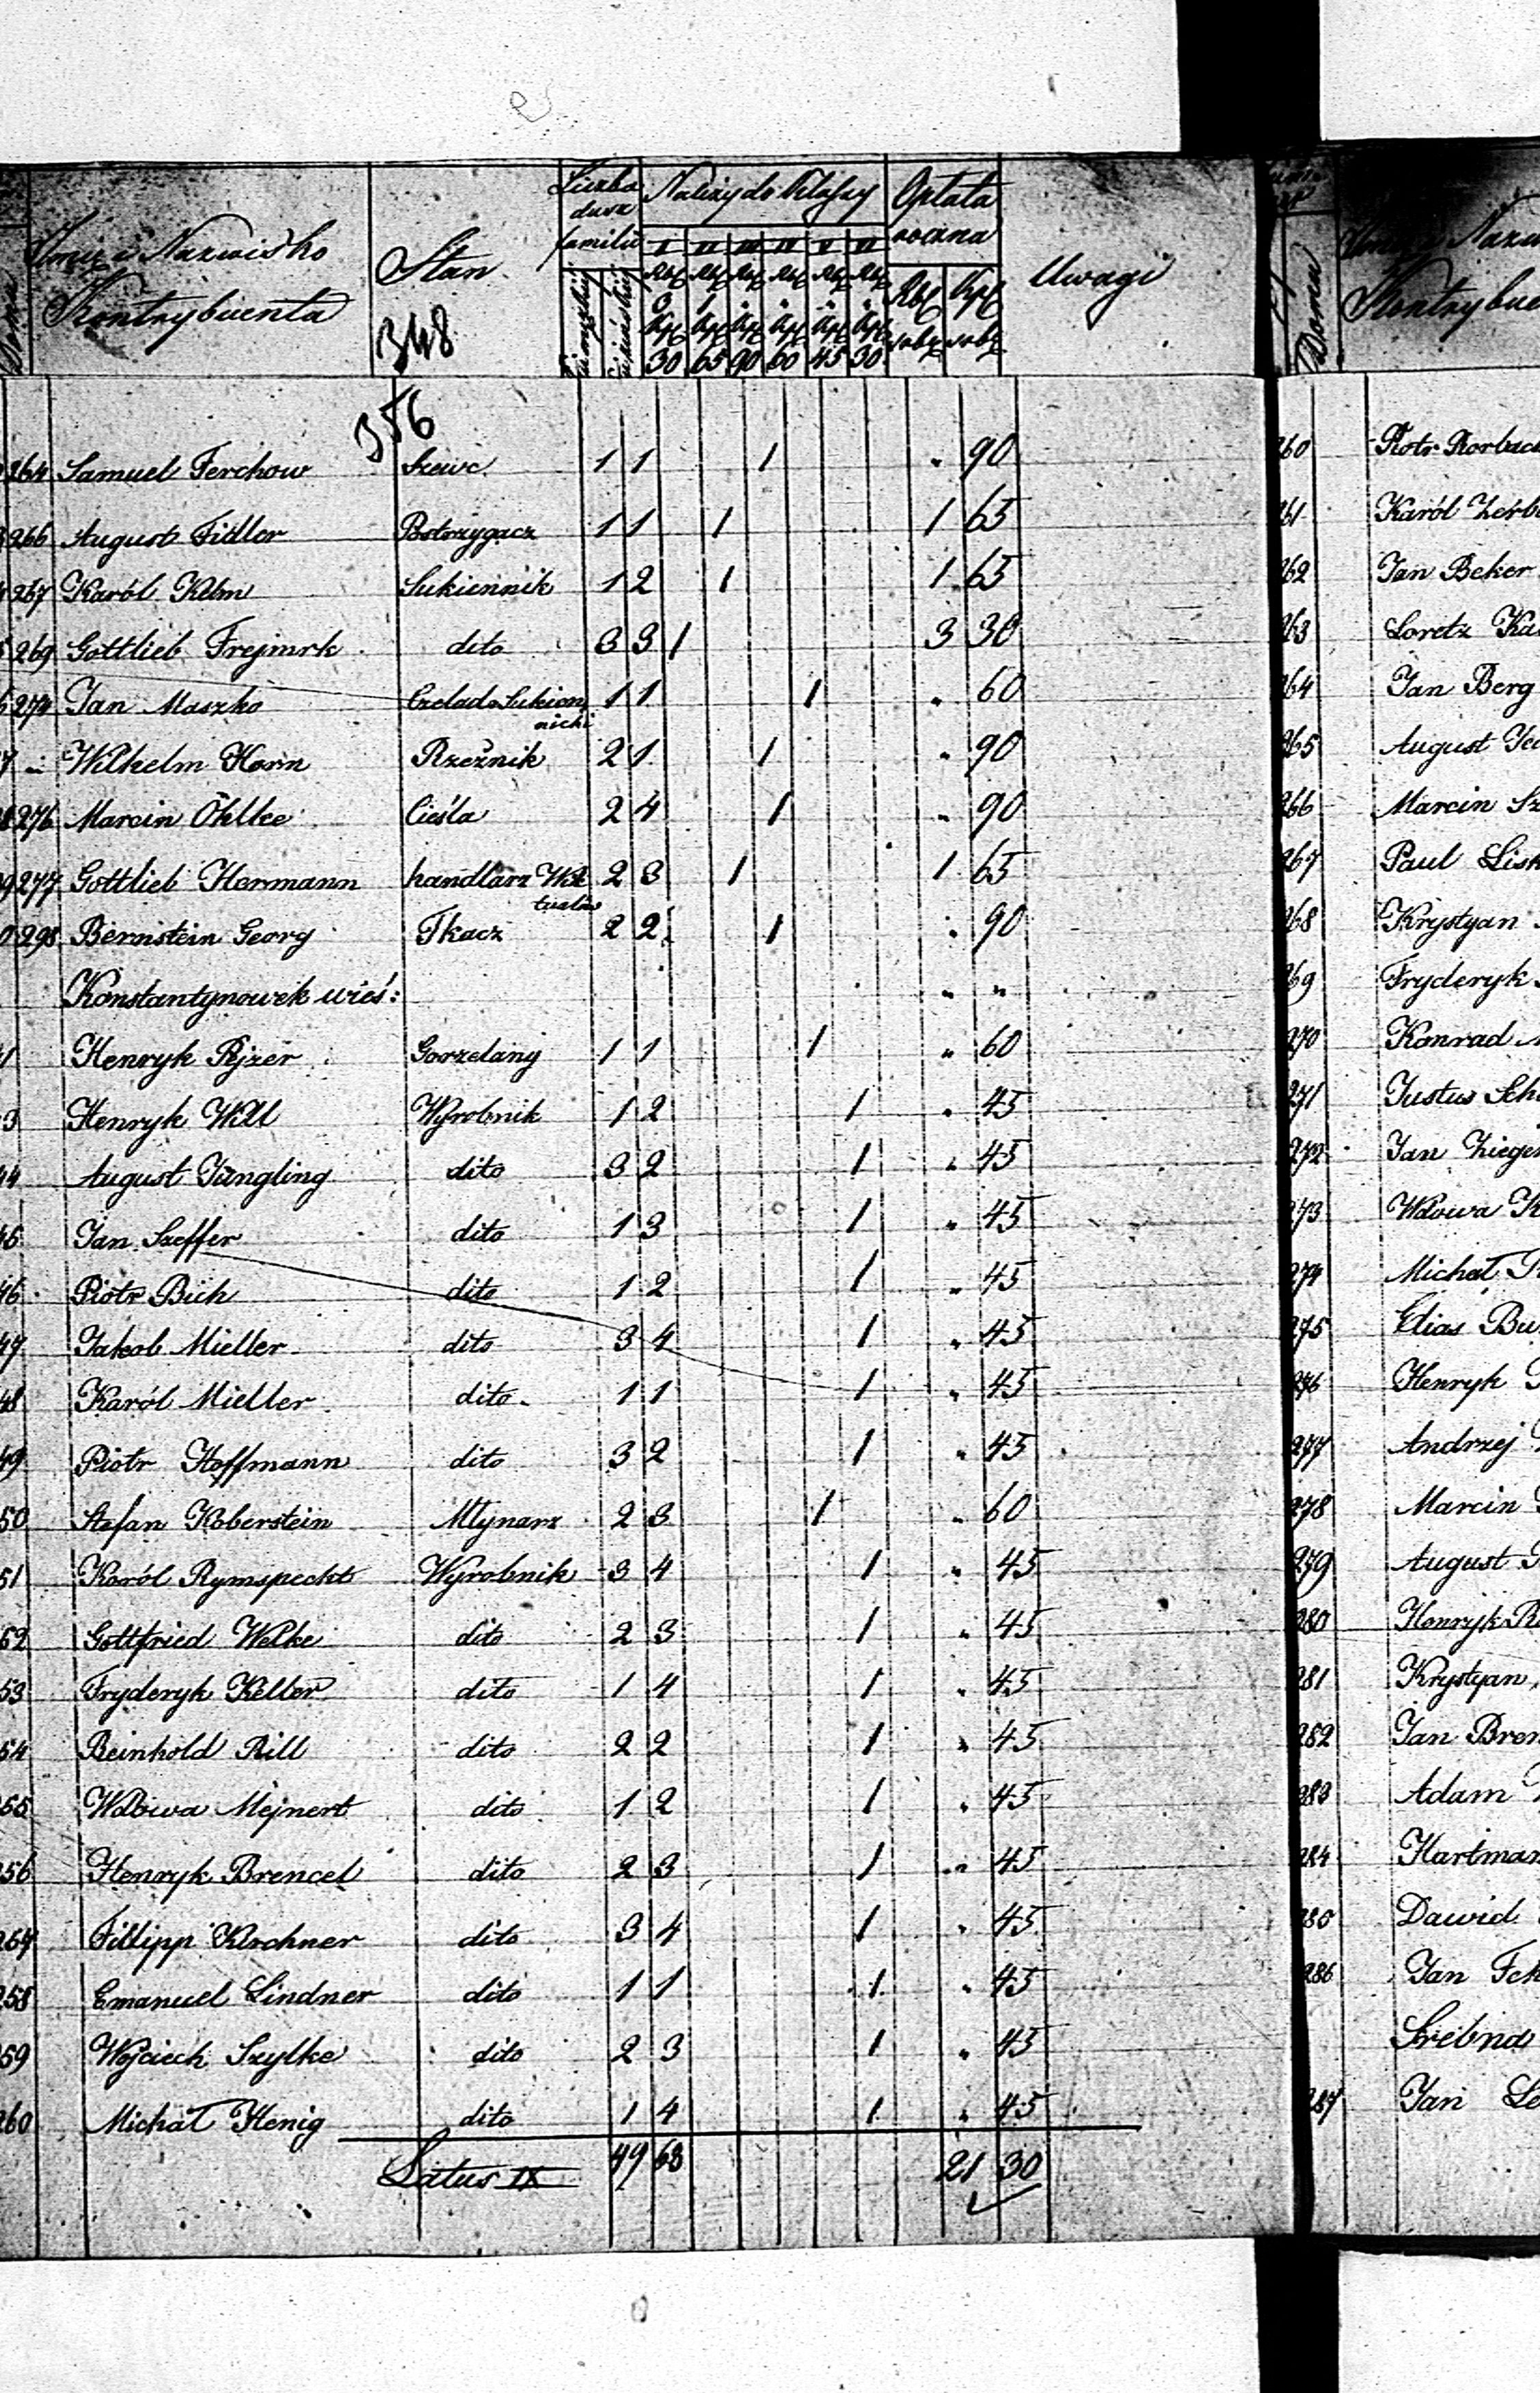 Imię i Nazwisko Kontrybuenta
Stan
348
Liczba dusz familii
Należy do Klassy
I II III IV V VI
30 65 90 60 45 30
Opłata roczna
Rbl Kpk
Uwagi
356
264 Samuel Ferchow Szewc 1 1 1 " 90
266 August Fidler Postrzygacz 1 1 1 1 65
267 Karól Kelm Sukiennik 1 2 1 1 65
269 Gottlieb Frejmrk dito 3 3 1 3 30
274 Jan Maszko Czelad. Sukiennicki 1 1 1 " 60
Wilhelm Horn Rzeźnik 2 1 1 " 90
276 Marcin Öhlke Cieśla 2 4 1 " 90
277 Gottlieb Hermann handlarz Wiktuałów 2 3 1 1 65
298 Bernstein Georg Tkacz 2 2 1 " 90
Konstantynowek wieś: " "
Henryk Pejzer Gorzelany 1 1 1 " 60
3 Henryk Will Wyrobnik 1 2 1 " 45
44 August Jüngling dito 3 2 1 " 45
Jan Szeffer dito 1 3 1 " 45
46 Piotr Bich dito 1 2 1 " 45
47 Jakob Mieller dito 3 4 1 " 45
48 Karól Mieller dito 1 1 1 " 45
49 Piotr Hoffmann dito 3 2 1 " 45
50 Stefan Koberstein Młynarz 2 3 1 " 60
51 Karól Rymspecht Wyrobnik 3 4 1 " 45
52 Gottfried Welke dito 2 3 1 " 45
53 Fryderyk Keller dito 1 4 1 " 45
54 Reinhold Rill dito 2 2 1 " 45
255 Wdowa Mejnert dito 1 2 1 " 45
256 Henryk Brencel dito 2 3 1 " 45
257 Fillipp Kirchner dito 3 4 1 " 45
258 Emanuel Lindner dito 1 1 1 " 45
259 Wojciech Szylke dito 2 3 1 " 45
260 Michał Henig dito 1 4 1 " 45
Latus IX 49 68 21 30
Imię i Nazw
Kontrybue
260 Piotr Korbac
261 Karól Zerb
262 Jan Beker
263 Loretz Ka
264 Jan Berg
265 August
266 Marcin Sz
267 Paul Lisk
268 Krystyan
269 Fryderyk
270 Konrad
271 Justus Sch
272 Jan Zieger
273 Wdowa K
274 Michał
275 Elias Bu
276 Henryk
277 Andrzej
278 Marcin
279 August
280 Henryk R
281 Krystyan
282 Jan Bren
283 Adam
284 Hartman
285 Dawid
286 Jan
Srebna
287 Jan Le